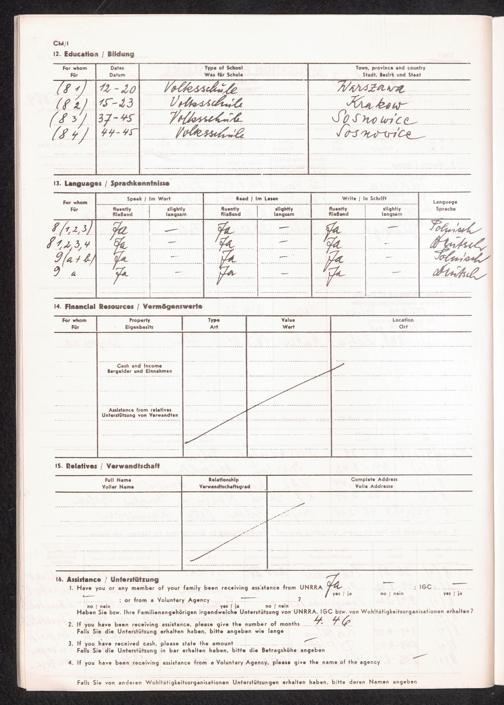 CM/1
12. Education / Bildung
For whom Dates Type of School Town, province and country
Für Datum Was für Schule Stadt, Bezirk und Staat
(81) 12-20 Volksschule Warszawa
(82) 15-23 Volksschule Krakow
(83) 37-45 Volksschule Sosnowice
(84) 44-45 Volksschule Sosnowice
13. Languages / Sprachkenntnisse
For whom Speak / Im Wort Read / Im Lesen Write / In Schrift Language
Für fluently slightly fluently slightly fluently slightly Sprache
fließend langsam fließend langsam fließend langsam
8(1,2,3) Ja — Ja — Ja — Polnisch
8 1,2,3,4 Ja - Ja - Ja - Deutsch
9(a+b) Ja - Ja - Ja - Polnisch
9 a Ja - Ja - Ja - Deutsch
14. Financial Resources / Vermögenswerte
For whom Property Type Value Location
Für Eigenbesitz Art Wert Ort
Cash and Income
Bargelder und Einnahmen
Assistance from relatives
Unterstützung von Verwandten
15. Relatives / Verwandtschaft
Full Name Relationship Complete Address
Voller Name Verwandtschaftsgrad Volle Addresse
16. Assistance / Unterstützung
1. Have you or any member of your family been receiving assistance from UNRRA Ja — : IGC —
yes / ja no / nein yes / ja
— : or from a Voluntary Agency — — ?
no / nein yes / ja no / nein
Haben Sie bzw. Ihre Familienangehörigen irgendwelche Unterstützung von UNRRA, IGC bzw. von Wohltätigkeitsorganisationen erhalten?
2. If you have been receiving assistance, please give the number of months 4. 46
Falls Sie die Unterstützung erhalten haben, bitte angeben wie lange
3. If you have received cash, please state the amount —
Falls Sie die Unterstützung in bar erhalten haben, bitte die Betragshöhe angeben
4. If you have been receiving assistance from a Voluntary Agency, please give the name of the agency —
Falls Sie von anderen Wohltätigkeitsorganisationen Unterstützungen erhalten haben, bitte deren Namen angeben